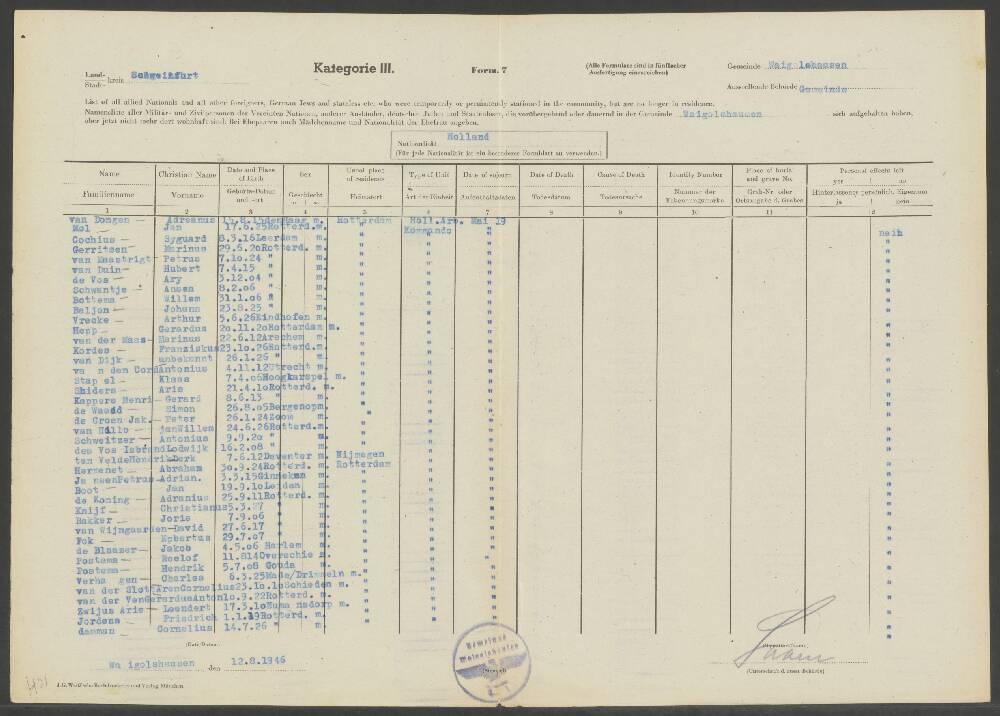 Land-
Stadt- kreis Schweinfurt
Kategorie III.
Form. 7
(Alle Formulare sind in fünffacher
Ausfertigung einzureichen)
Gemeinde Waigolshausen
Ausstellende Behörde Gemeinde
List of all allied Nationals and all other foreigners, German Jews and stateless etc. who were temporarily or permanently stationed in the community, but are no longer in residence.
Namensliste aller Militär- und Zivilpersonen der Vereinten Nationen, anderer Ausländer, deutscher Juden und Staatenloser, die vorübergehend oder dauernd in der Gemeinde Waigolshausen sich aufgehalten haben,
aber jetzt nicht mehr dort wohnhaft sind. Bei Ehepaaren auch Mädchenname und Nationalität der Ehefrau angeben.
Holland
Nationalität
(Für jede Nationalität ist ein besonderes Formblatt zu verwenden.)
Name Christian Name Date and Place of Birth Sex Usual place of residence Type of Unit Date of sojourn Date of Death Cause of Death Identity Number Place of burial and grave No. Personal effects left yes no
Familienname Vorname Geburts-Datum und -ort Geschlecht Heimatort Art der Einheit Aufenthaltsdaten Todesdatum Todesursache Nummer der Erkennungsmarke Grab-Nr. oder Ortsangabe d. Grabes Hinterlassenes persönlich. Eigentum ja nein
1 2 3 4 5 6 7 8 9 10 11 12
van Dongen — Adreanus 15.8.15denHaag m. Rotterdam Holl.Arb. Mai 19
Mol — Jan 17.6.25Rotterd.m. " Kommando " nein
Cochius — Syguard 8.3.16Leerdam m. " " " "
Gerritsen — Marinus 29.6.20Rotterd. m. " " " "
van Maastrigt Petrus 7.10.24 " m. " " " "
van Duin — Hubert 7.4.15 " m. " " " "
de Vos — Ary 3.12.04 " m. " " " "
Schwantje — Ansen 8.2.06 " m. " " " "
Bottema — Willem 31.1.06 " m. " " " "
Baljon — Johann 23.8.25 " m. " " " "
Vrecke — Arthur 5.6.26Eindhofen m. " " " "
Hepp — Gerardus 20.11.20Rotterdam m. " " " "
van der Maas Marinus 22.6.12Arnchem m. " " " "
Kordes — Franziskus23.10.26Rotterd.m. " " " "
van Dijk — unbekannt 26.1.26 " m. " " " "
va n den CordAntonius 4.11.12Utrecht m. " " " "
Stap el — Klaas 7.4.06Hoogkarspel m. " " " "
Shiders — Arie 21.4.10Rotterd. m. " " " "
Kappers Henri— Gerard 8.6.13 " m. " " " "
de Waedd — Simon 26.8.05Bergenopm. " " " "
de Groen Jak.— Peter 26.1.24Zoom m. " " " "
van Hillo — janWillem 24.6.26Rotterd.m. " " " "
Schweitzer — Antonius 9.9.20 " m. " " " "
des Vos IsbrandLodwijk 16.2.08 " m. " " " "
ten VeldeHendrikDerk 7.6.12Deventer m. Nijmegen " " "
Hermenet — Abraham 30.9.24Rotterd. m. Rotterdam " " "
Ja nsenPetrus—Adrian. 3.3.15Ginneken m. " " " "
Boot — Jan 19.9.10Leiden m. " " " "
de Koning — Adranius 25.9.11Rotterd. m. " " " "
Knijf — Christianus5.3.27 " m. " " " "
Bakker — Joris 7.9.06 " m. " " " "
van Wijngaarden—David 27.6.17 " m. " " " "
Fok — Egbertus 29.7.07 " m. " " " "
de Blaazer— Jakob 4.5.06 Harlem m. " " " "
Postema — Roelof 11.814Overschie m. " " " "
Postema — Hendrik 5.7.08 Gouda m. " " " "
Verha gen — Charles 6.3.25Made/Drimmeln m. " " " "
van der SlotArenCornelius23.10.10Schieden m. " " " "
van der VenGerardusAnton10.9.22Rotterd. m. " " " "
Zwijus Arie — Leendert 17.3.10Numa nsdorp m. " " " "
Jordens — Friedrich 1.1.19Rotterd. m. " " " "
damman — Cornelius 14.7.26 " m. " " " "
(Ort/Datum)
Wa igolshausen den 12.8.1946
Gemeinde
Waigolshausen
(Unterschrift d. ausst. Behörde)